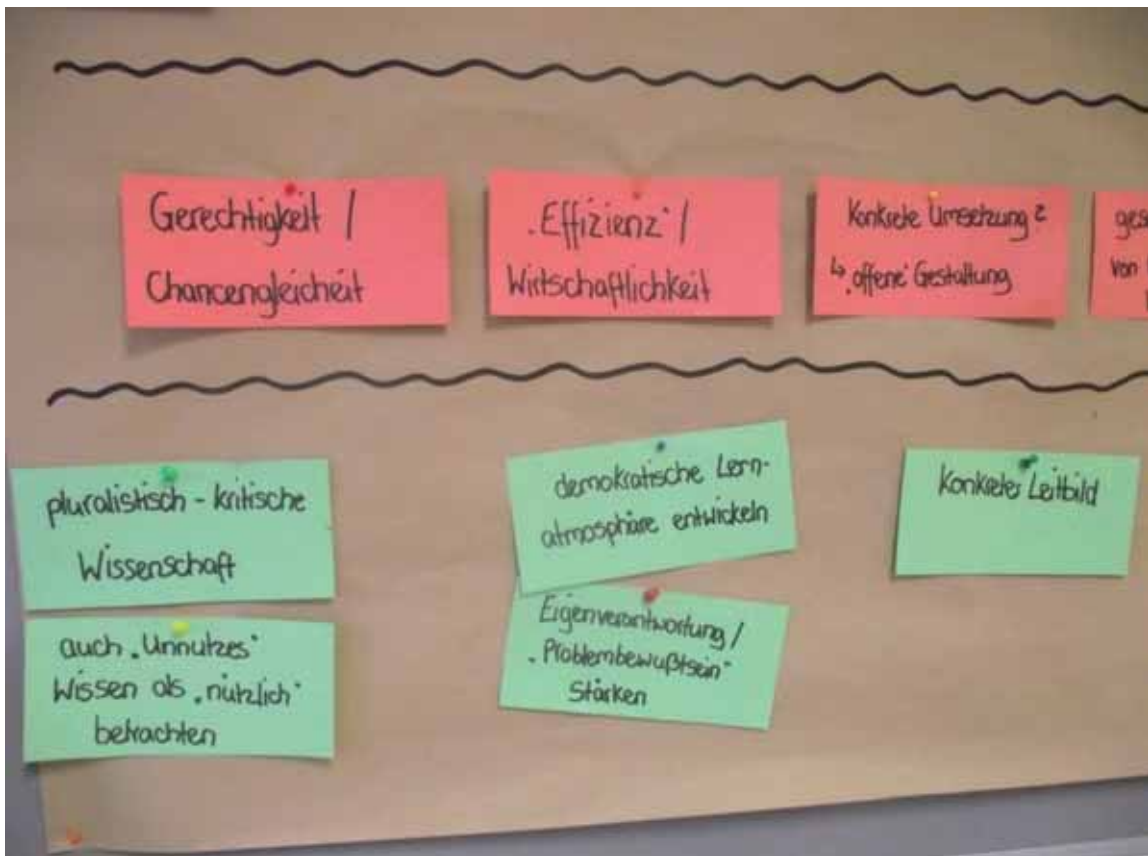 Gerechtigkeit /
Chancengleicheit
„Effizienz" /
Wirtschaftlichkeit
Konkrete Umsetzung?
↳ „offene" Gestaltung
von
pluralistisch - kritische
Wissenschaft
auch „Unnutzes"
Wissen als „nützlich"
betrachten
demokratische Lern-
atmosphäre entwickeln
Eigenverantwortung /
„Problembewußtsein"
Stärken
Konkretes Leitbild